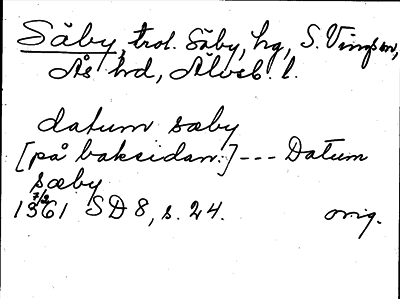 Säby, trol. Säby, hg, S. Vings sn,
Ås hd, Älvsb. l.
datum sæby
[på baksidan:] --- Datum
sæby
7/2
1361 SD 8, s. 24. orig.